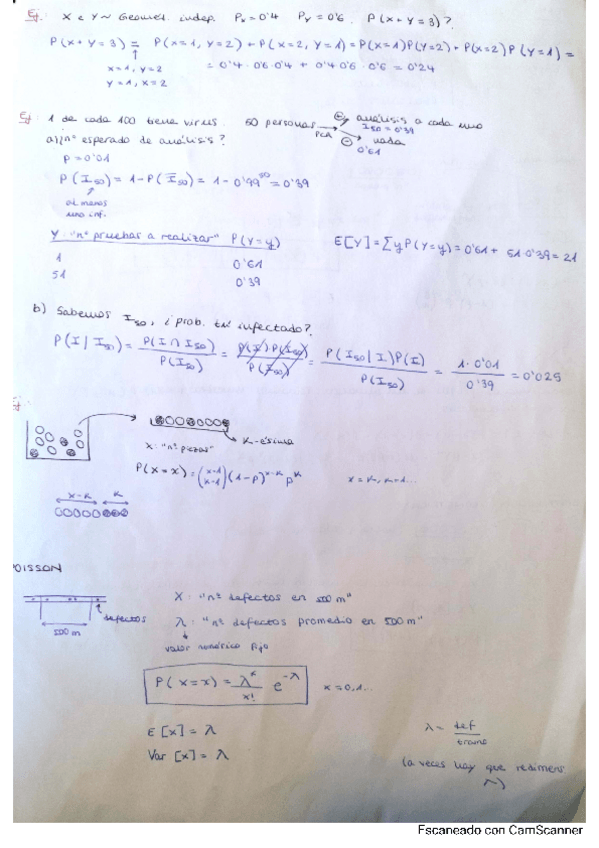 Ej: X e Y ~ Geomet. indep. Px = 0'4 Py = 0'6. P(x+Y=3)?
P(x+Y=3) = P(x=1, y=2) + P(x=2, Y=1) = P(x=1)P(Y=2) + P(x=2)P(Y=1) =
x=1, y=2
y=1, x=2
= 0'4 · 0'6 · 0'4 + 0'4 · 0'6 · 0'6 = 0'24
Ej: 1 de cada 100 tiene virus. 50 personas PCR ⊕ análisis a cada uno
I50 = 0'39
⊖ nada
0'61
a) ¿nº esperado de análisis?
p = 0'01
P(I50) = 1 - P(Ī50) = 1 - 0'99^50 = 0'39
al menos
uno inf.
Y: "nº pruebas a realizar" P(Y=y)
1 0'61
51 0'39
E[Y] = ∑ y P(Y=y) = 0'61 + 51·0'39 = 21
b) Sabemos I50, ¿prob. infectado?
P(I | I50) = P(I ∩ I50) / P(I50) = P(I) P(I50) / P(I50) = P(I50 | I) P(I) / P(I50) = 1 · 0'01 / 0'39 = 0'025
Ej:
K-ésima
X: "nº piezas"
P(x=x) = (x-1 k-1) (1-p)^x-k p^k x = k, k+1...
x-k k
POISSON
X: "nº defectos en 500 m"
defectos
500 m
λ: "nº defectos promedio en 500 m"
valor numérico fijo
P(x=x) = λ^x / x! e^-λ x = 0,1...
E[x] = λ
Var[x] = λ
λ = def / tramo
(a veces hay que redimens
λ)
Escaneado con CamScanner